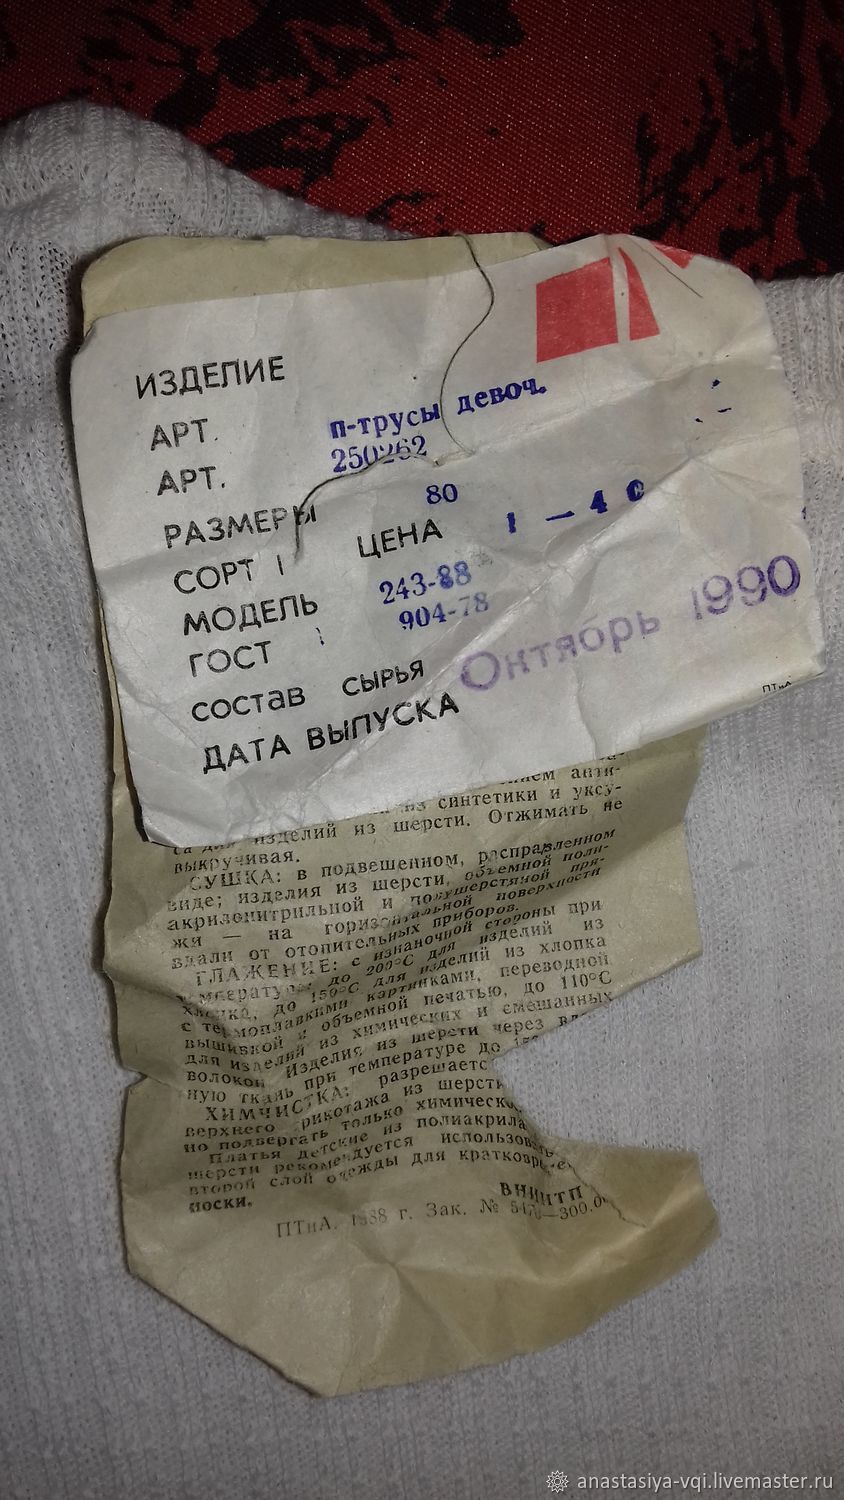 ИЗДЕЛИЕ
АРТ. п-трусы девоч.
АРТ. 250262
РАЗМЕРЫ 80
СОРТ I ЦЕНА 1 — 40
МОДЕЛЬ 243-88
ГОСТ 904-78
состав сырья
ДАТА ВЫПУСКА Октябрь 1990
ПТиА
анти-
из синтетики и уксу-
са для изделий из шерсти. Отжимать не
выкручивая.
СУШКА: в подвешенном, расправленном
виде; изделия из шерсти, объемной поли-
акрилонитрильной и полушерстяной пря-
жи — на горизонтальной поверхности
вдали от отопительных приборов.
ГЛАЖЕНИЕ: с изнаночной стороны при
температуре до 200°С для изделий из
хлопка, до 150°С для изделий из хлопка
с термоплавкими картинками, переводной
вышивкой и объемной печатью, до 110°С
для изделий из химических и смешанных
волокон. Изделия из шерсти через
ную ткань при температуре до
ХИМЧИСТКА: разрешаетс
верхнего трикотажа из шерсти
но подвергать только химическо
Платья детские из полиакрила
шерсти рекомендуется использовать
второй слой одежды для кратковре
носки.
ВНИИТП
ПТиА. 1988 г. Зак. №
anastasiya-vqi.livemaster.ru